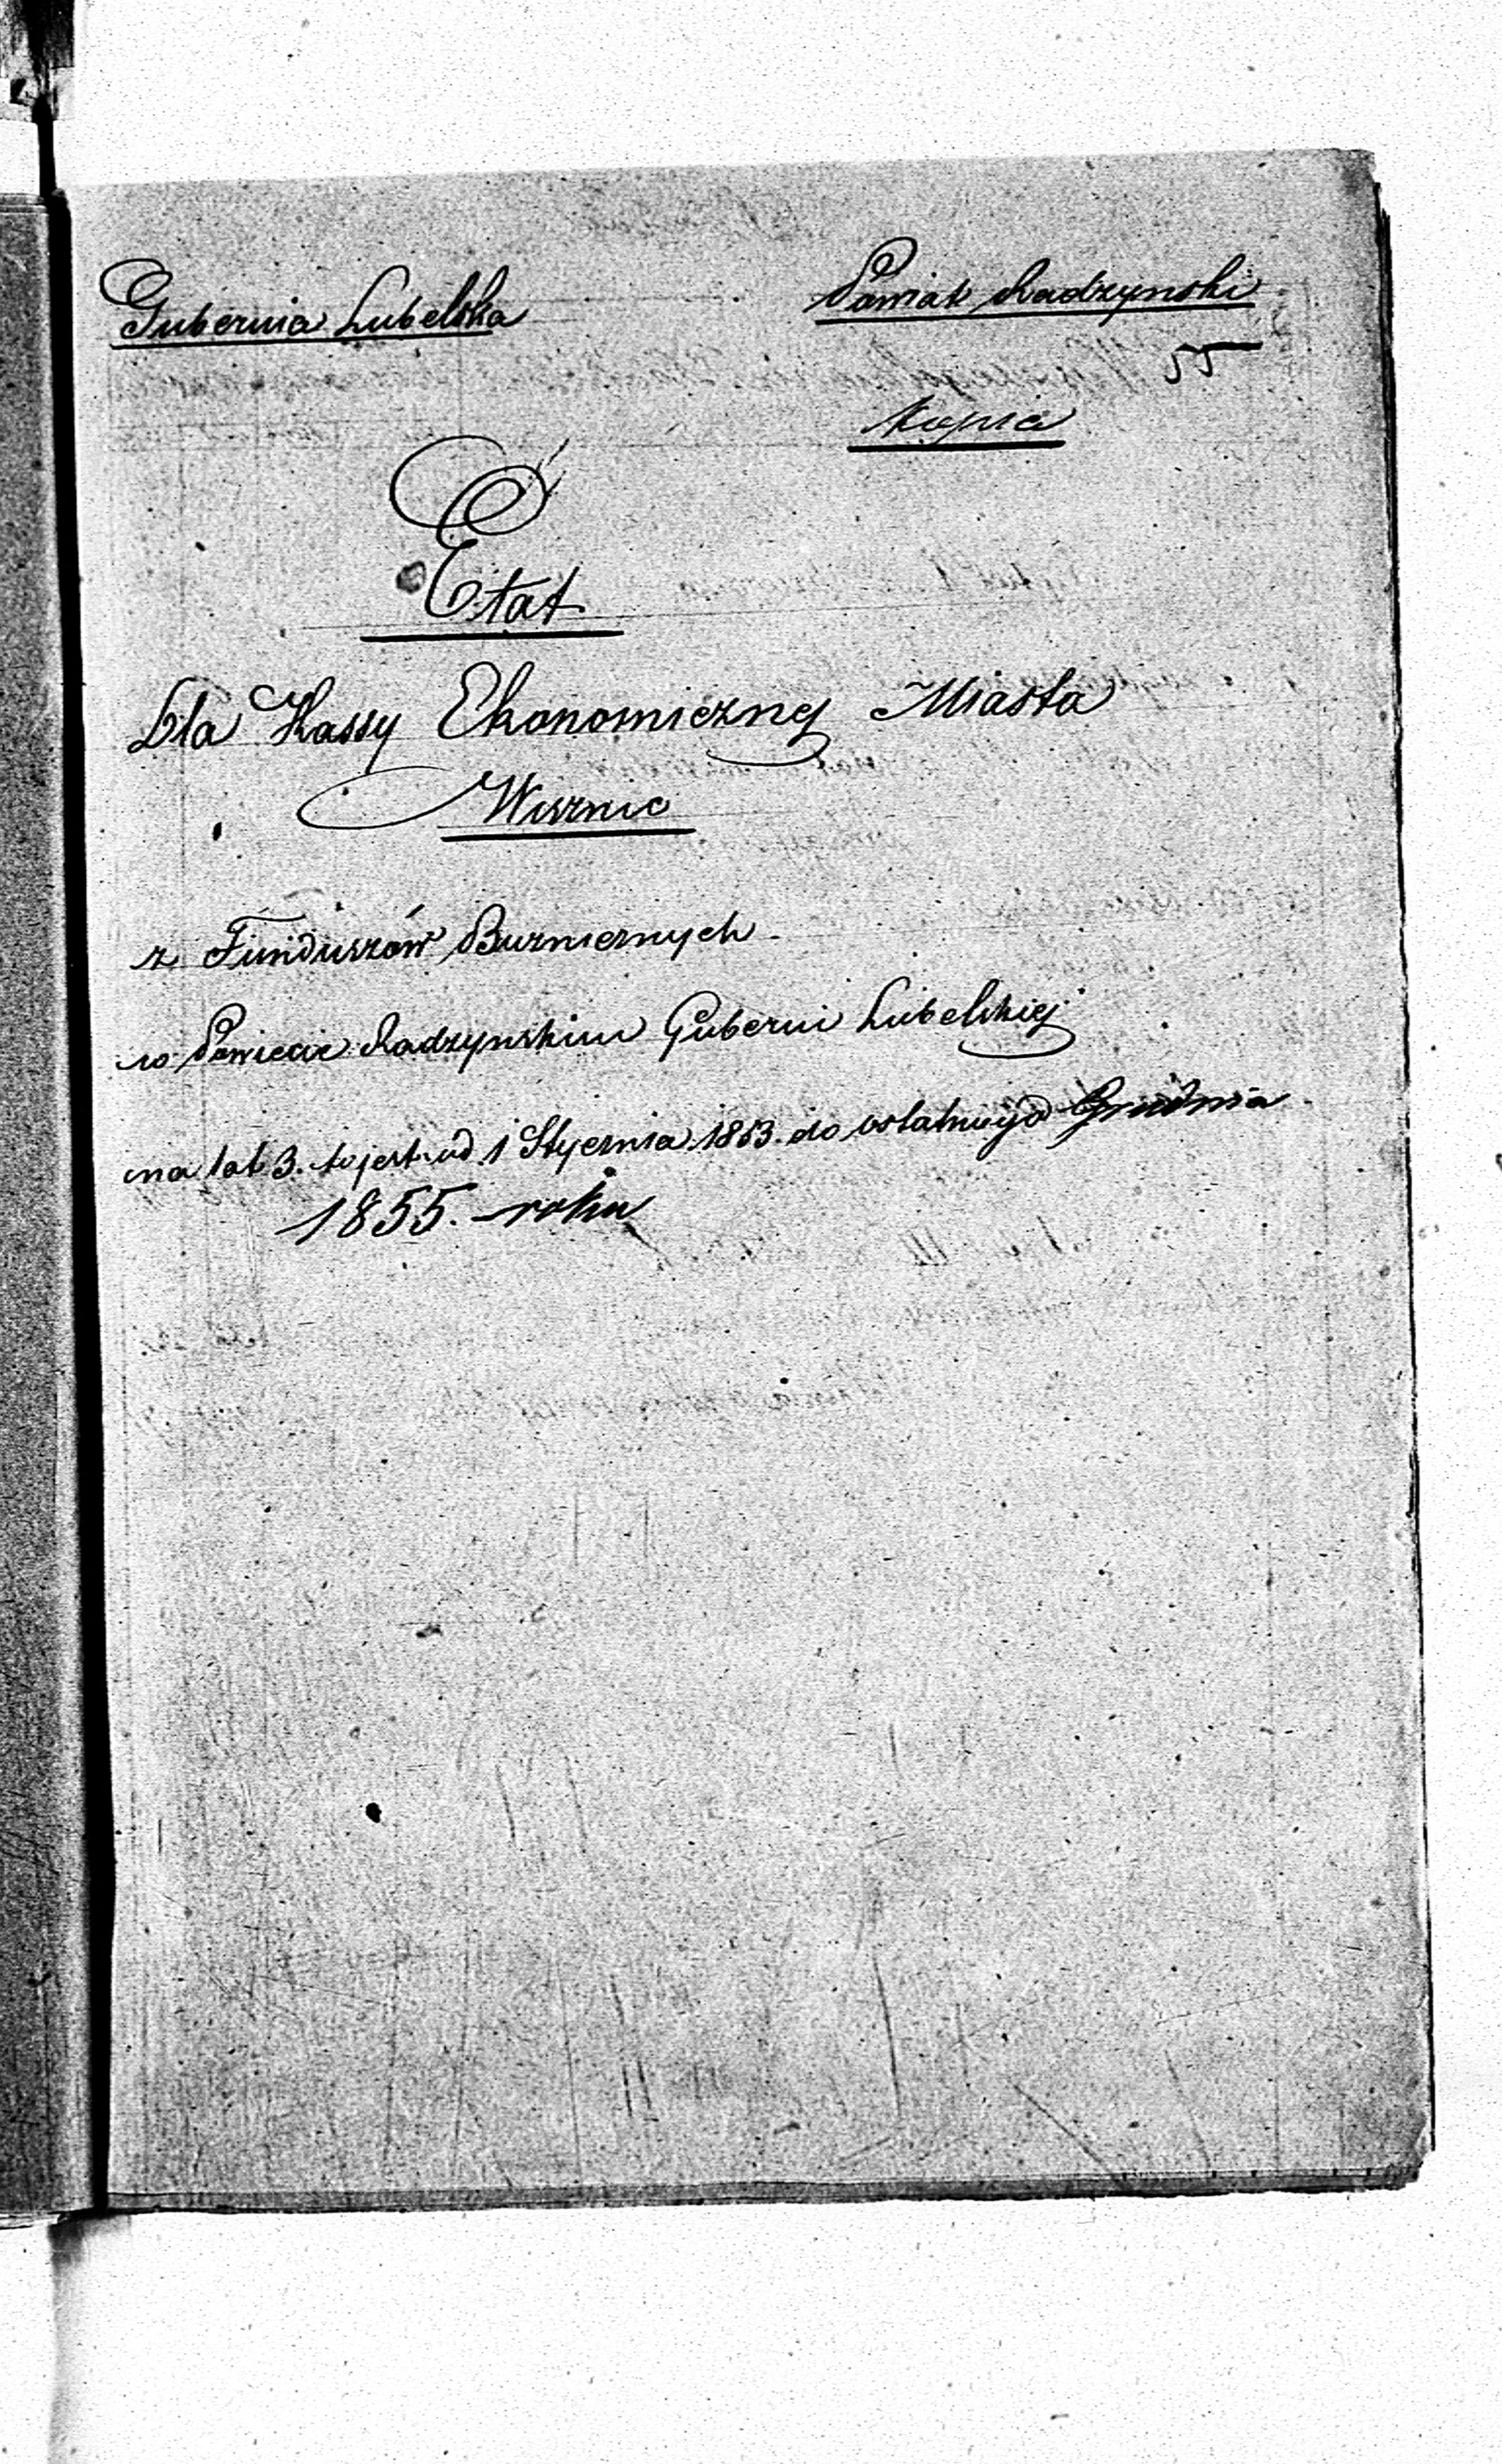 Gubernia Lubelska
Powiat Radzynski
55
Kopia
Etat
Dla Kassy Ekonomicznej Miasta
Wisznic
z Funduszów Buznicznych
w Powiecie Radzynskim Guberni Lubelskiej
na lat 3. to jest od 1 Stycznia 1853. do ostatniego Grudnia
1855. roku